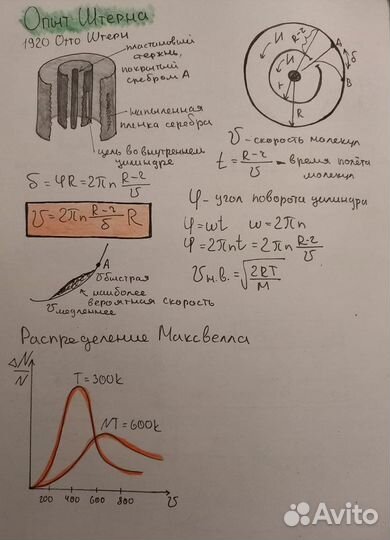 Опыт Штерна
1920 Отто Штерн
пластиновый
стержень,
покрытый
сребром А
напыленная
пленка серебра
щель во внутреннем
цилиндре
δ = φR = 2πn (R-r)/υ
υ = 2πn (R-r)/δ R
A
υ быстрая
наиболее
вероятная скорость
υ медленнее
И
И
R-r
A
δ
B
r
R
υ - скорость молекул
t = (R-r)/υ - время полёта
молекул
φ - угол поворота цилиндра
φ = ωt ω = 2πn
φ = 2πnt = 2πn (R-r)/υ
υн.в. = √(2RT/M)
Распределение Максвелла
ΔN/N
T = 300k
NT = 600k
200 400 600 800 υ
Avito